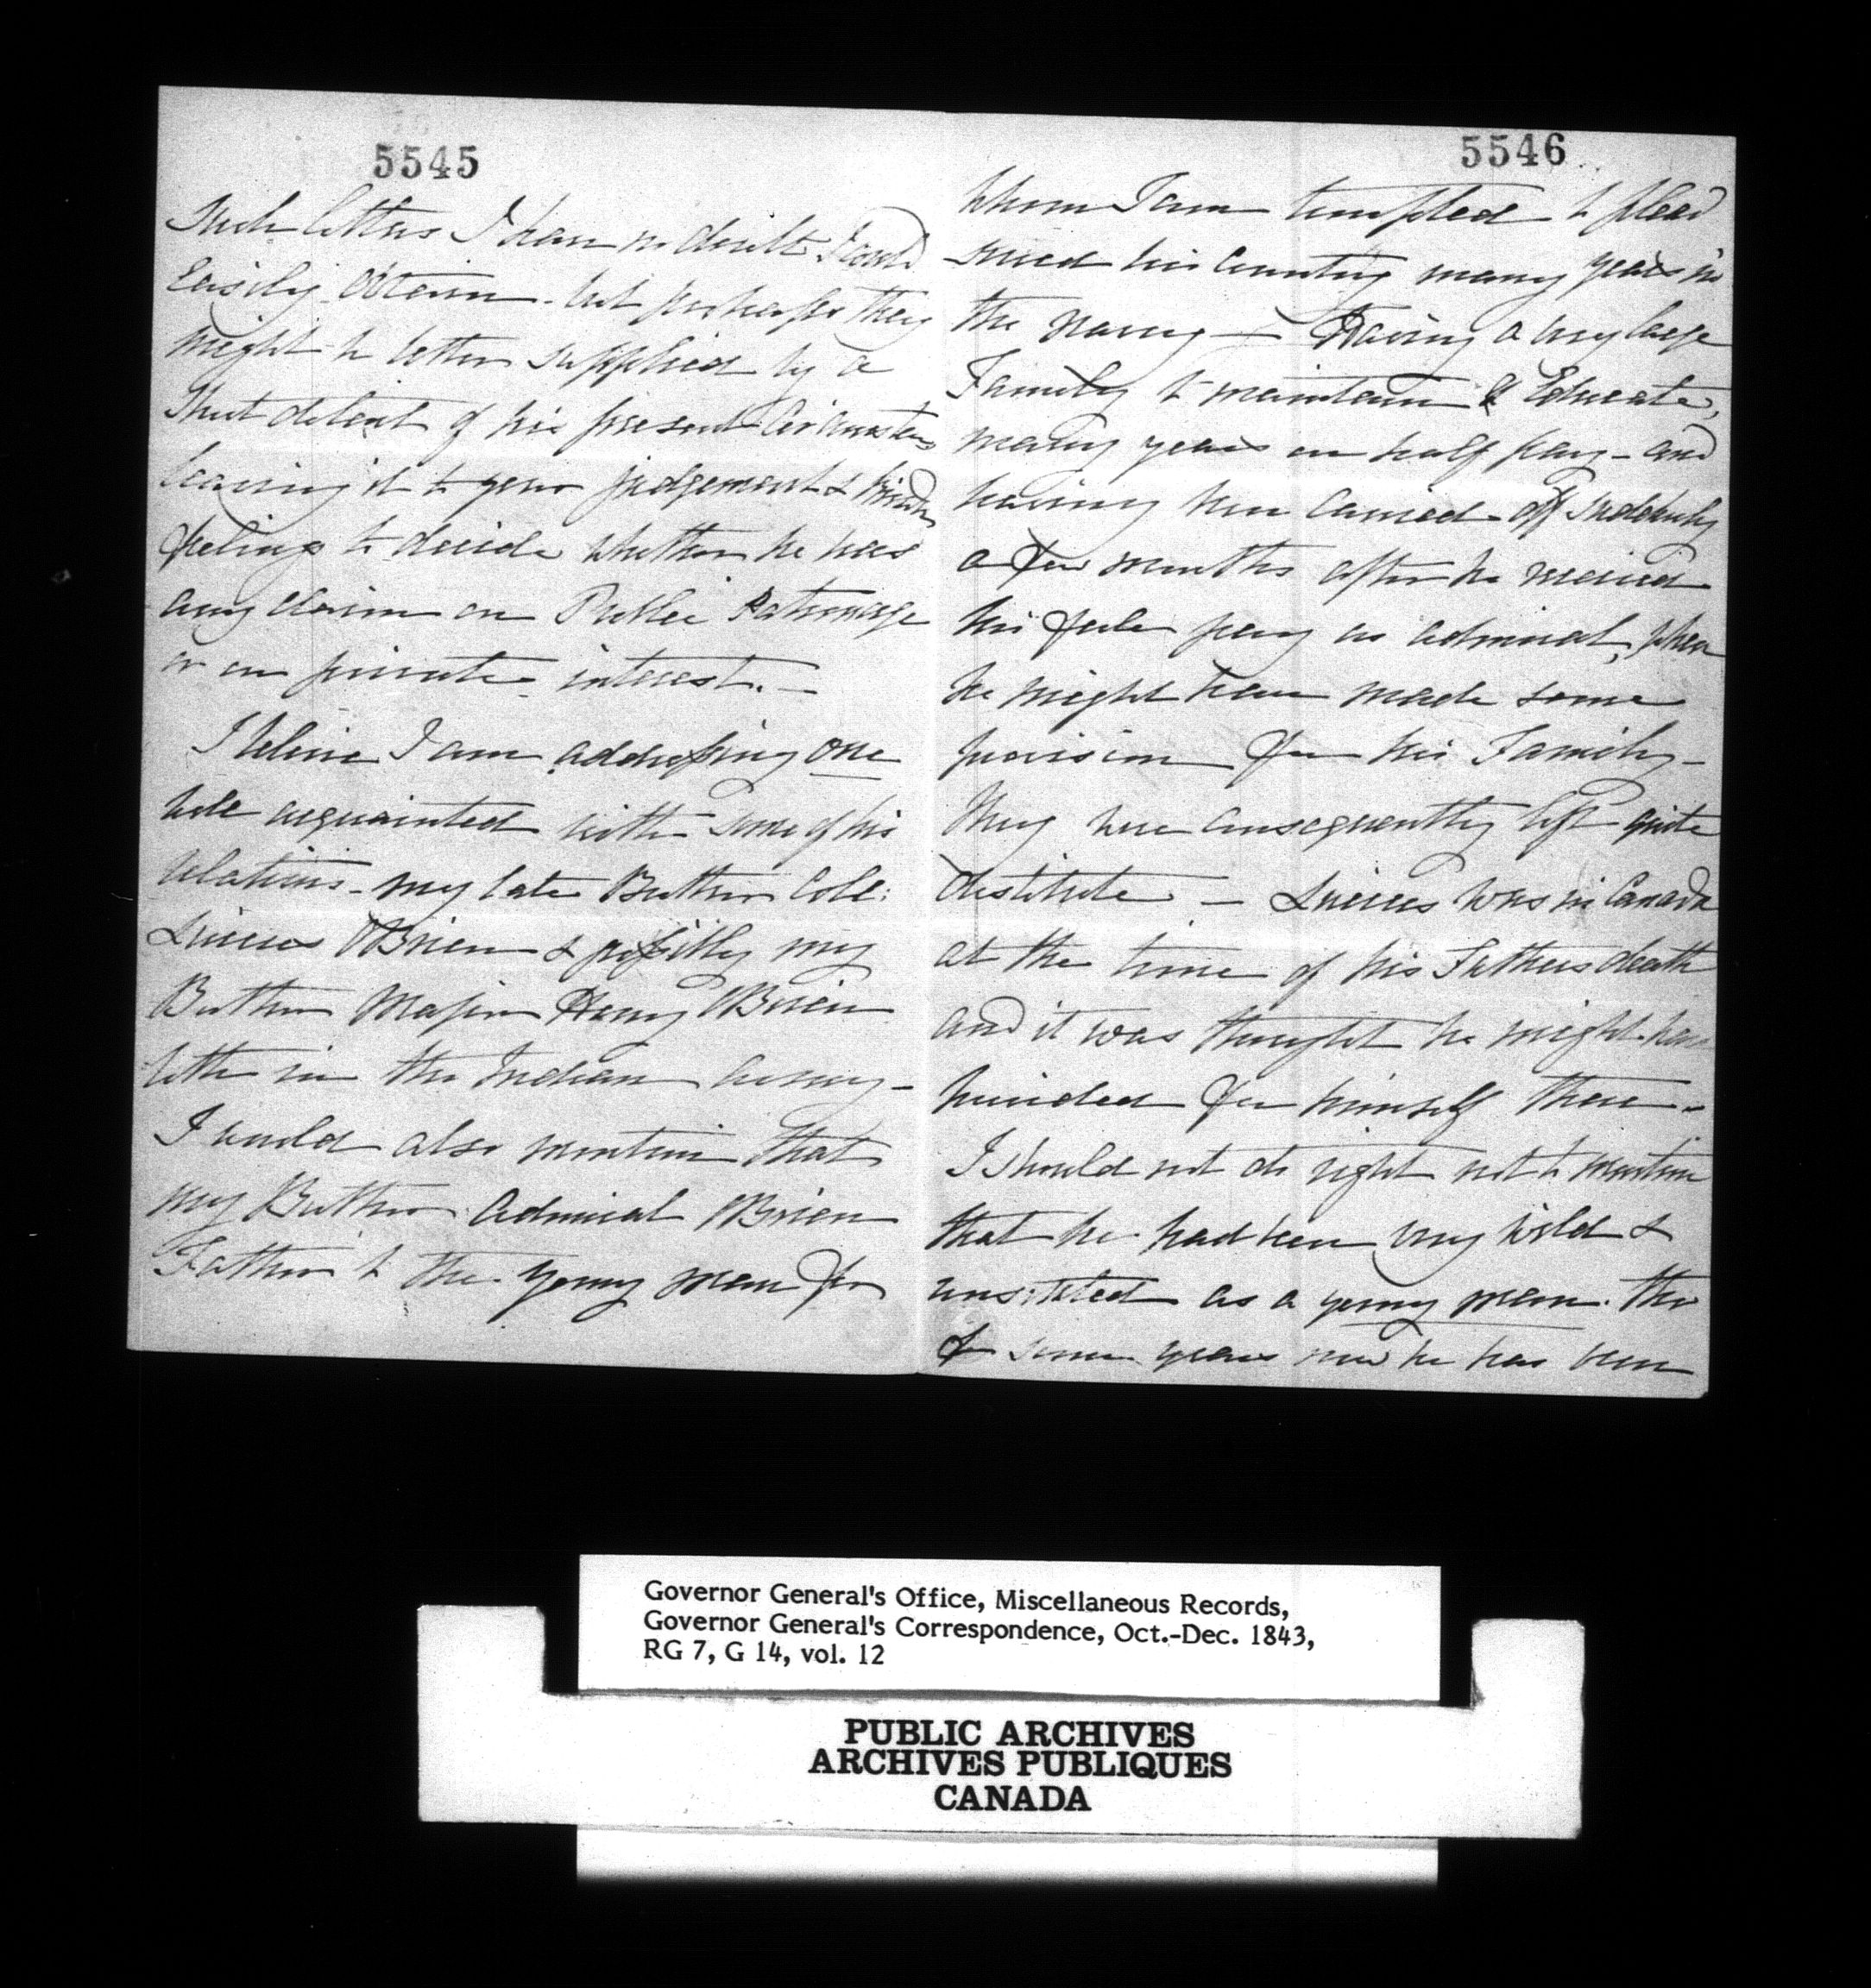 5545
Such letters I have no doubt I could
Easily obtain - but perhaps they
might be better supplied by a
short detail of his present Circumstances
leaving it to your judgement & kind
feelings to decide whether he has
any claim on Public Patronage
or on private interest. —
I believe I am addressing one
well acquainted with some of his
relations - my late Brother Coll:
Lucius OBrien & possibly my
Brother Major Harry OBrien
both in the Indian army -
I would also mention that
my Brother Admiral OBrien
Father to the young man for
5546
whom I am tempted to plead
served his Country many years in
the Navy — Having a very large
Family to maintain & Educate,
many years on half pay - and
having been carried off suddenly
a few months after he received
his full pay as admiral, when
he might have made some
provision for his Family -
They were consequently left quite
destitute — Lucius was in Canada
at the time of his Fathers death
and it was thought he might have
provided for himself there -
I should not do right not to mention
that he had been very wild &
unsettled as a young man. tho
for some years now he has been
Governor General's Office, Miscellaneous Records,
Governor General's Correspondence, Oct.-Dec. 1843,
RG 7, G 14, vol. 12
PUBLIC ARCHIVES
ARCHIVES PUBLIQUES
CANADA